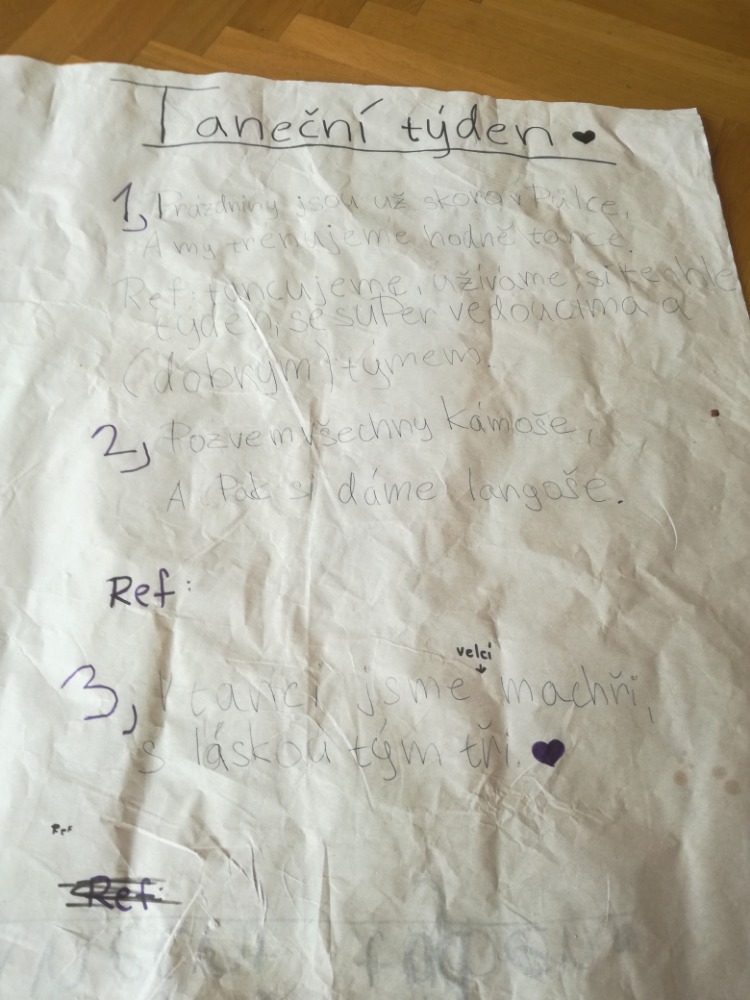 Taneční týden ♥
1, Prázdniny jsou už skoro v Půlce,
A my trénujeme hodně tance.
Ref: tancujeme, užíváme si tenhle
týden, se suPer vedoucíma a
(dobrým) týmem.
2, Pozvem všechny kámoše,
A Pak si dáme langoše.
Ref:
velcí
3, V tanci jsme machři,
s láskou tým tři. ♥
Ref
Ref: